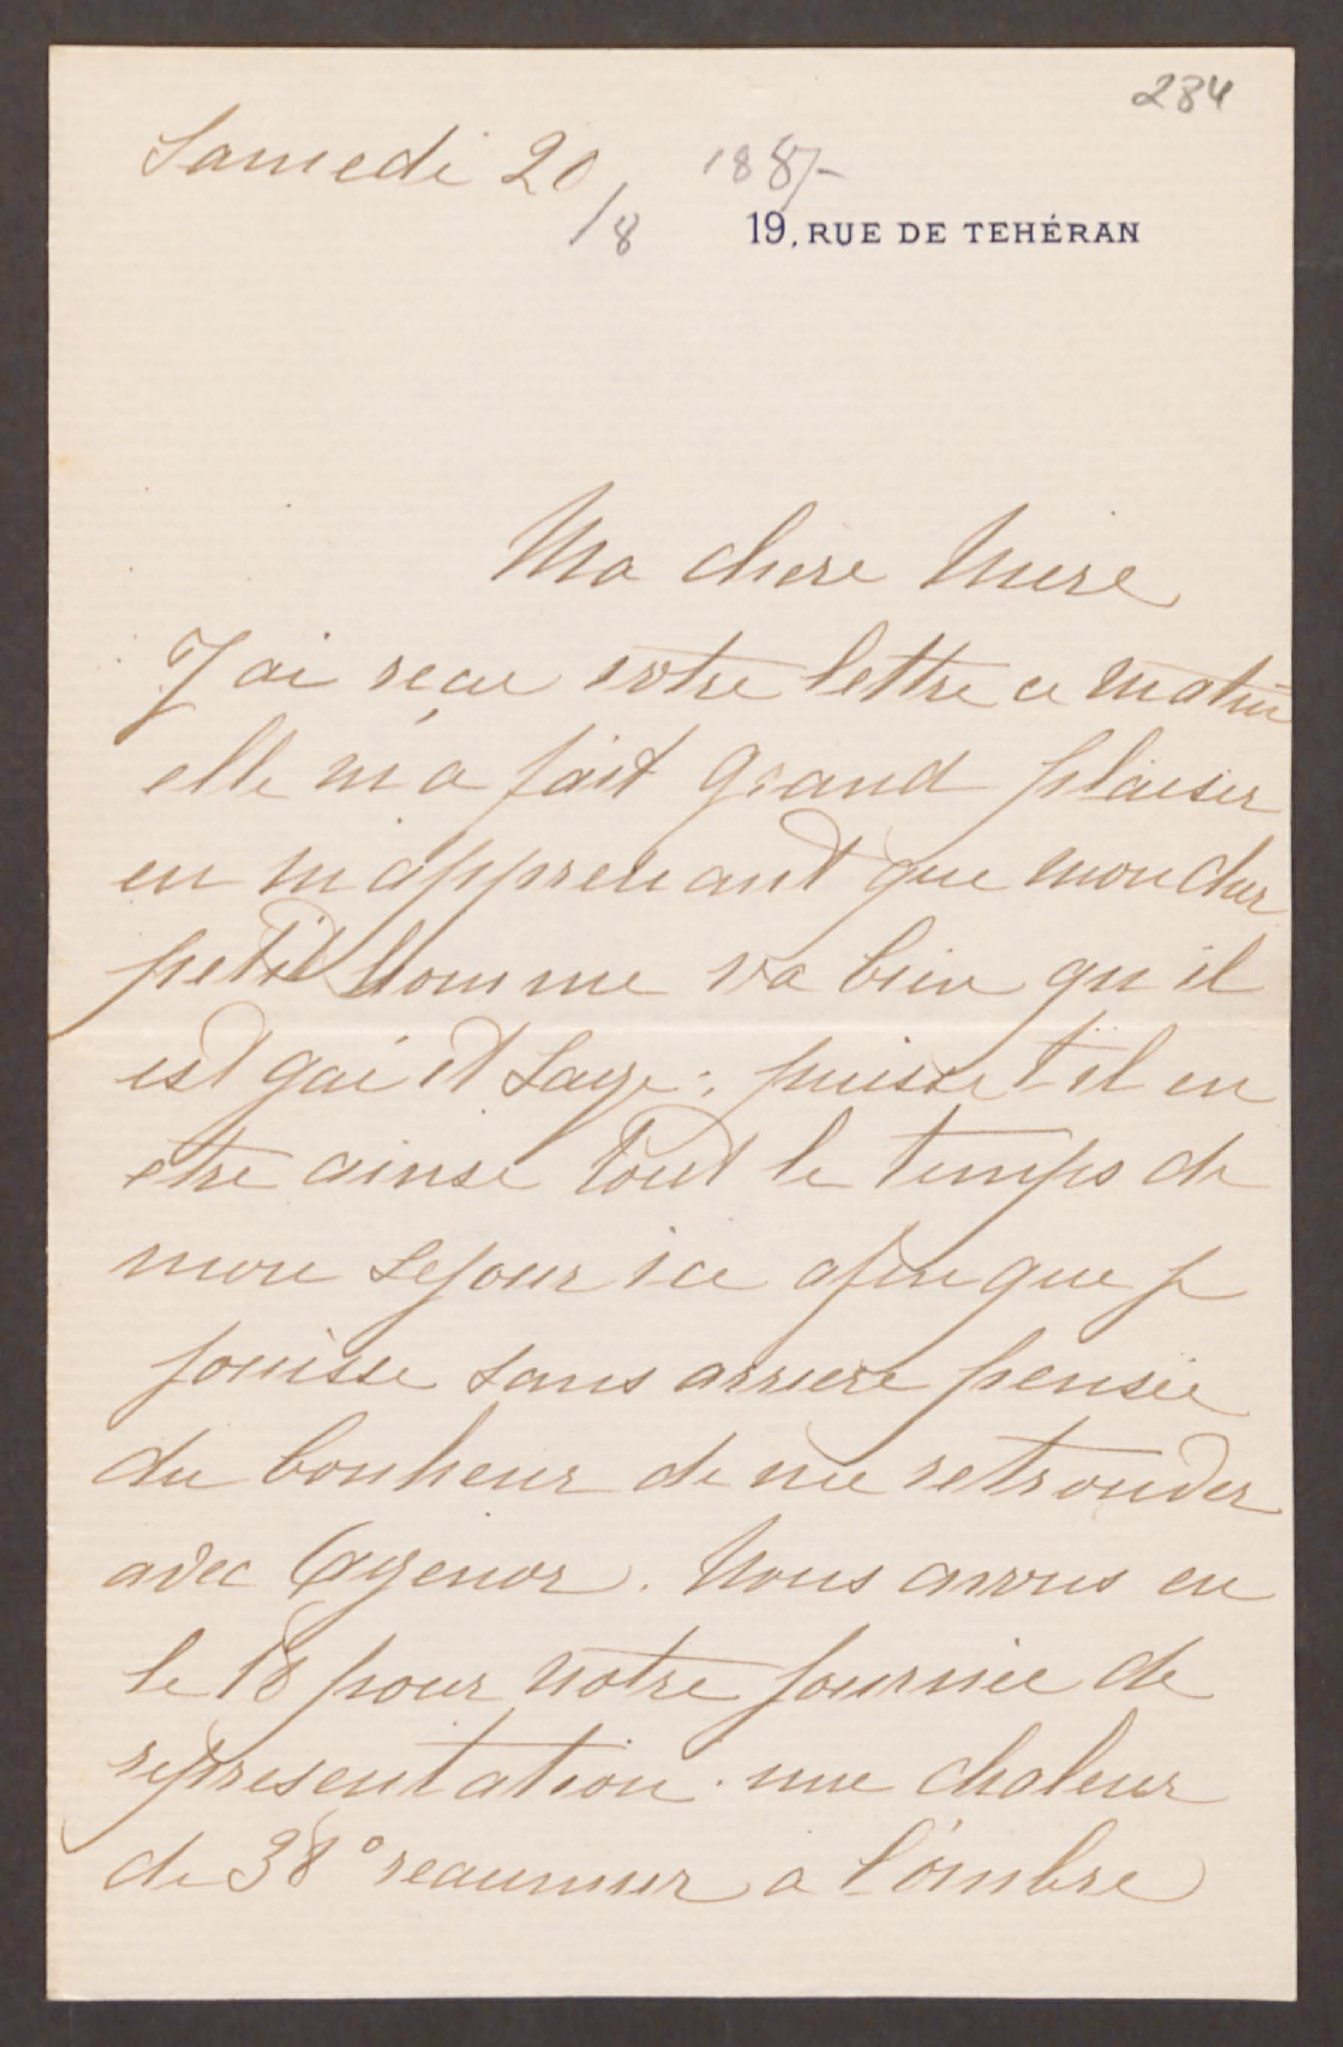 284
Samedi 20
/8 1887-
19, RUE DE TEHÉRAN
Ma chère Mere
J'ai reçue votre lettre ce matin
elle m'a fait grand plaisir
en m'apprenant que mon cher
petit homme va bien qu'il
est gai et sage; puisse t'il en
etre ainsi tout le temps de
mon sejour ici afin que je
jouisse sans arriere pensée
du bonheur de me retrouver
avec Agenor. Nous avons eu
le 18 pour notre journée de
representation une chaleur
de 38° reaumur a l'ombre